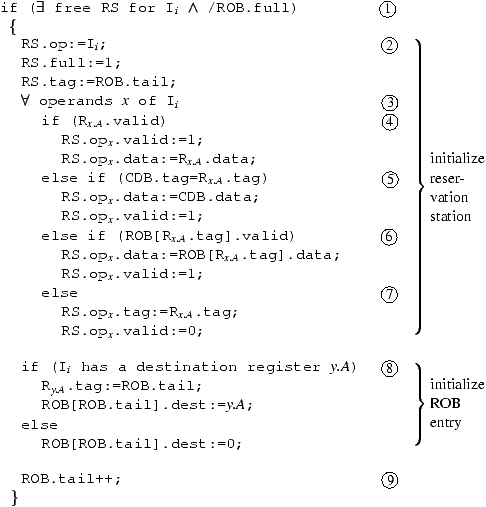 if (∃ free RS for Iᵢ ∧ /ROB.full) ①
{
RS.op:=Iᵢ; ②
RS.full:=1;
RS.tag:=ROB.tail;
∀ operands x of Iᵢ ③
if (Rₓ.A.valid) ④
RS.opₓ.valid:=1;
RS.opₓ.data:=Rₓ.A.data;
else if (CDB.tag=Rₓ.A.tag) ⑤
RS.opₓ.data:=CDB.data;
RS.opₓ.valid:=1;
else if (ROB[Rₓ.A.tag].valid) ⑥
RS.opₓ.data:=ROB[Rₓ.A.tag].data;
RS.opₓ.valid:=1;
else ⑦
RS.opₓ.tag:=Rₓ.A.tag;
RS.opₓ.valid:=0;
initialize
reser-
vation
station
if (Iᵢ has a destination register y.A) ⑧
Ry.A.tag:=ROB.tail;
ROB[ROB.tail].dest:=y.A;
else
ROB[ROB.tail].dest:=0;
initialize
ROB
entry
ROB.tail++; ⑨
}